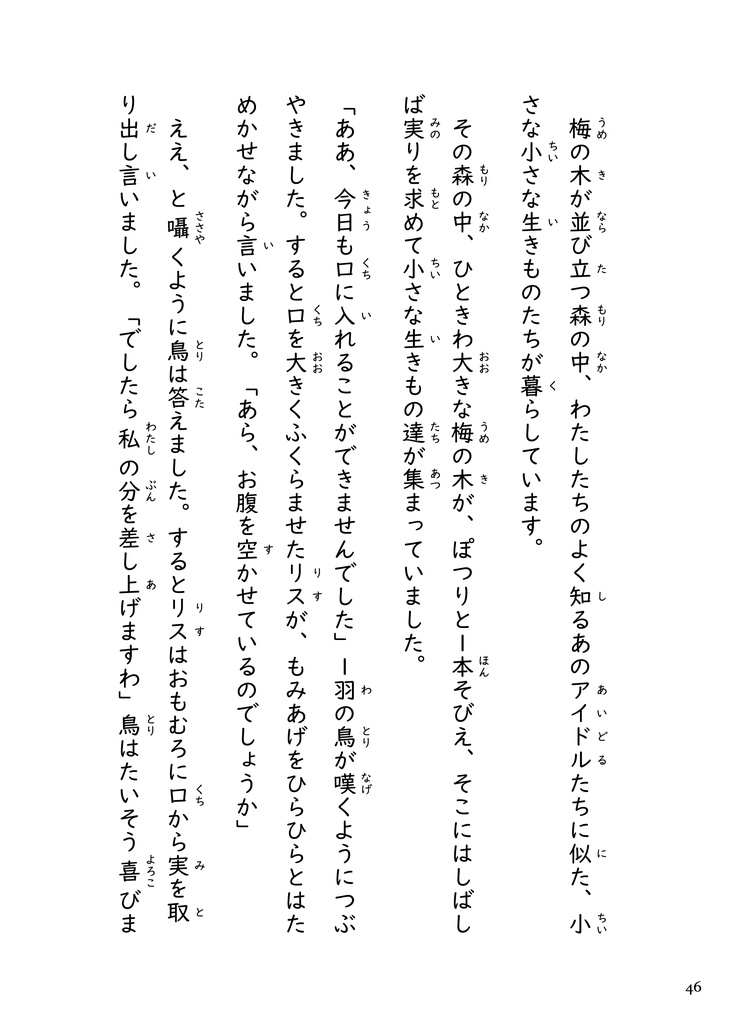 梅の木が並び立つ森の中、わたしたちのよく知るあのアイドルたちに似た、小
さな小さな生きものたちが暮らしています。
その森の中、ひときわ大きな梅の木が、ぽつりと一本そびえ、そこにはしばし
ば実りを求めて小さな生きもの達が集まっていました。
「ああ、今日も口に入れることができませんでした」一羽の鳥が嘆くようにつぶ
やきました。すると口を大きくふくらませたリスが、もみあげをひらひらとはた
めかせながら言いました。「あら、お腹を空かせているのでしょうか」
ええ、と囁くように鳥は答えました。するとリスはおもむろに口から実を取
り出し言いました。「でしたら私の分を差し上げますわ」鳥はたいそう喜びま
46